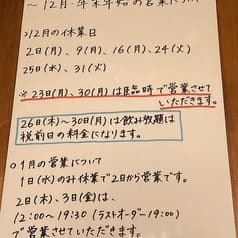 ～12月・年末年始の営業について
○12月の休業日
2日(月)、9(月)、16(月)、24(火)
25日(水)、31(火)
※23日(月)、30(月)は臨時で営業させて
いただきます。
26日(木)～30日(月)は飲み放題は
税前日の料金になります。
○1月の営業について
1日(水)のみ休業で2日から営業です。
2日(木)、3日(金)は、
12:00～19:30(ラストオーダー19:00)
で営業させていただきます。